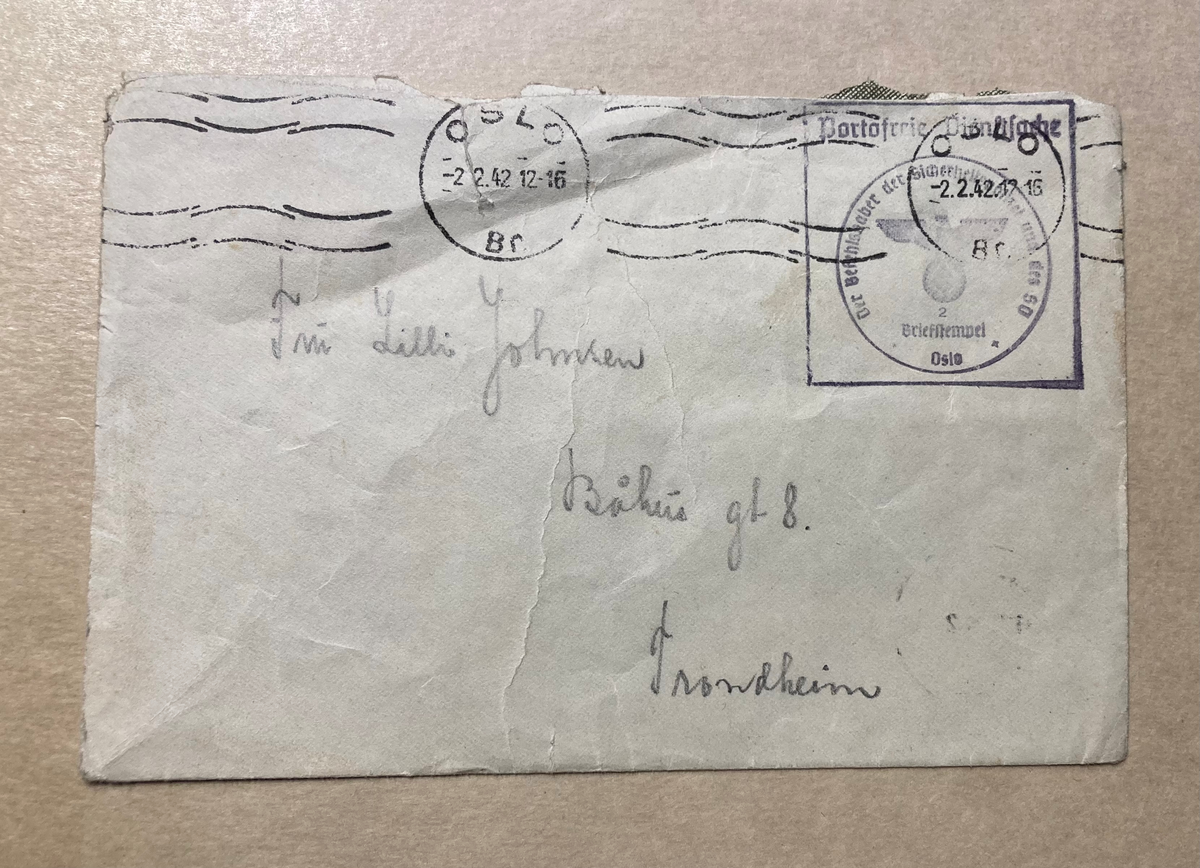 OSLO
-2.2.42 12-16
Br.
Portofreie Dienstsache
OSLO
-2.2.42.12-16
Br.
Der Befehlshaber der Sicherheitspolizei und des SD
2
Briefstempel
Oslo
Fru Lilli Johnsen
Båhus gt 8.
Trondheim